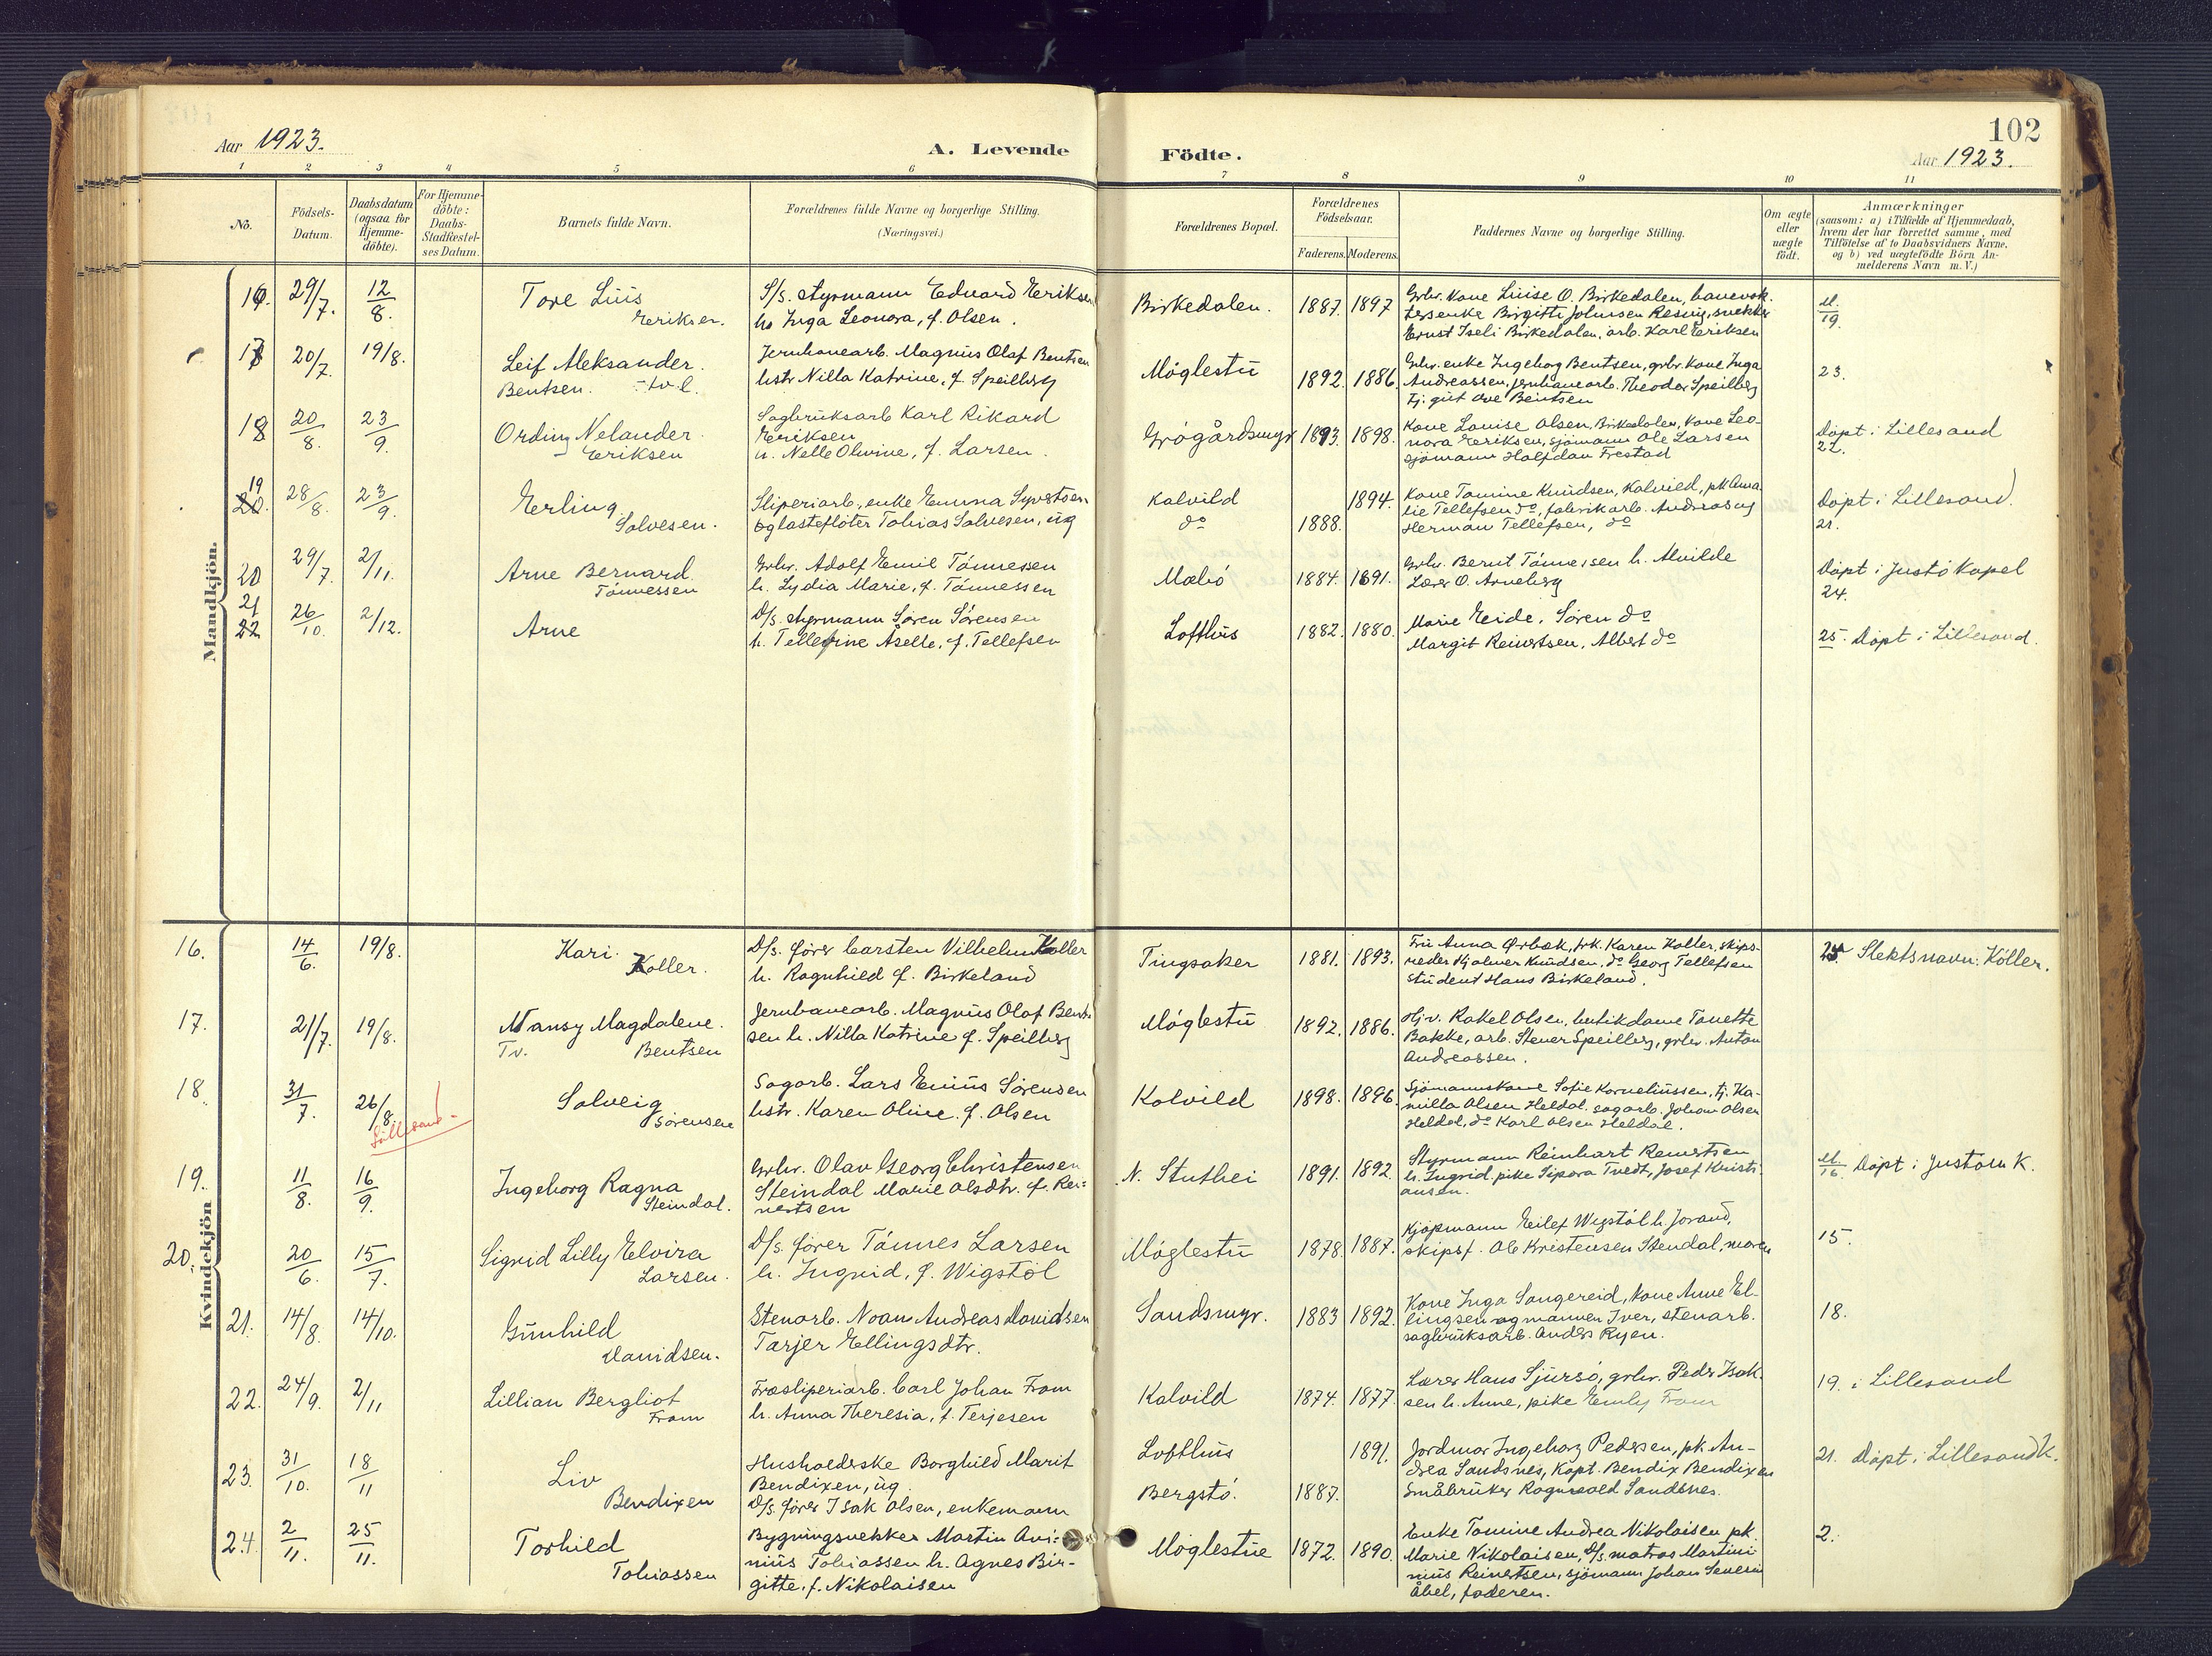 102
Aar 1923.
A. Levende Födte.
Aar 1923.
1 2 3 4 5 6 7 8 9 10 11
No.
Födsels-
Datum.
Daabsdatum
(ogsaa for
Hjemme-
döbte).
For Hjemme-
döbte:
Daabs-
Stadfæstel-
ses Datum.
Barnets fulde Navn.
Forældrenes fulde Navne og borgerlige Stilling.
(Næringsvei.)
Forældrenes Bopæl.
Forældrenes
Födselsaar.
Faderens. Moderens.
Faddernes Navne og borgerlige Stilling.
Om ægte
eller
uægte
födt.
Anmærkninger
(saasom: a) i Tilfælde af Hjemmedaab,
hvem der har forrettet samme, med
Tilföielse af to Daabsvidners Navne,
og b) ved uægtefödte Börn An-
melderens Navn m. V.)
Mandkjön.
16. 29/7. 12/8.
Tore Luis
Eriksen.
S/s. styrmann Edvard Eriksen
hs Inga Leonora, f. Olsen.
Birkedalen. 1887. 1897
Grbr. kone Luise O. Birkedalen, banevok.
tersenke Birgitte Johnsen Resvig, snekker
Ernst Iseli Birkedalen, arb. Karl Eriksen
19.
17 20/7. 19/8.
Leif Aleksander.
Bentsen. tv.
Jernbanearb. Magnus Olaf Bentsen
hstr Nilla Katrine, f. Speilberg
Møglestu 1892. 1886.
Grbr. enke Ingeborg Bentsen, grbr. kone Inga
Andreassen, jernbanearb. Theodor Speilberg
tj. gut Ove Bentsen
23.
18 20/8. 23/9.
Ording Nelander.
Eriksen
Sagbruksarb Karl Rikard
Eriksen
h. Nelle Olivine, f. Larsen.
Grøgårdsmyr 1893. 1898.
Kone Louise Olsen, Birkedalen, kone Leo-
nora Eriksen, sjømann Ole Larsen
sjømann Halfdan Frestad
Døpt i Lillesand
22.
19 20. 28/8. 23/9.
Erling
Salvesen.
Sliperiarb., enke Emma Syvertsen
og lastefløter Tobias Salvesen, ug
Kalvild
do
1894.
1888.
Kone Tomine Knudsen, Kalvild, pk Ama-
lie Tellefsen do, fabrikarb. Andreas og
Herman Tellefsen, do
Døpt i Lillesand.
21.
20 29/7. 2/11.
Arne Bernard.
Tønnessen
Grbr. Adolf Emil Tønnessen
h. Lydia Marie, f. Tønnessen
Mæbø 1884. 1891.
Grbr. Bernt Tønnessen h. Alvilde
Lærer O. Arneberg
Døpt i Justø Kapel
24.
21 22 26/10. 2/12.
Arne
D/s. styrmann Søren Sørensen
h. Tellefine Åselle, f. Tellefsen
Lofthus 1882. 1880.
Marie Eide, Søren do
Margit Reiertsen, Albert do
25. Døpt i Lillesand.
Kvindekjön
16. 14/6. 19/8.
Kari.
Koller.
D/s. fører Carsten Vilhelm Koller
h. Ragnhild f. Birkeland
Tingsaker 1881. 1893.
Fru Anna Ørbæk, frk. Karen Koller, skips-
reder Hjalmer Knudsen, do Georg Tellefsen
student Hans Birkeland.
Slektsnavn: Köller.
17. 21/7. 19/8.
Nansy Magdalene.
Tv. Bentsen
Jernbanearb. Magnus Olaf Bent-
sen h. Nilla Katrine f. Speilberg
Møglestu 1892. 1886.
Hjv. Rakel Olsen, butikdame Tanette
Bakke, arb. Stener Speilberg, grbr. Anton
Andreassen.
18. 31/7. 26/8.
Lillesand
Solveig
Sørensen
Sagarb. Lars Enius Sørensen
hstr. Karen Oline. f. Olsen
Kalvild 1898. 1896.
Sjømannskone Sofie Korneliussen, tj. Ka-
milla Olsen Heldal. sagarb. Johan Olsen
Heldal, do Karl Olsen Heldal.
19. 11/8. 16/9.
Ingeborg Ragna
Steindal.
Grbr. Olav Georg Christensen
Steindal Marie Olsdtr. f. Rei-
nertsen
N. Stuthei 1891. 1892.
Styrmann Reinhart Reinertsen
h. Ingrid. pike Sipora Tvedt, Josef Kristi-
ansen.
16 Døpt i Justøen K.
20. 20/6. 15/7.
Sigrid Lilly Elvira
Larsen.
D/s. fører Tønnes Larsen
h. Ingrid, f. Wigstøl
Møglestu 1878. 1887.
Kjøpmann Eilef Wigstøl h. Jorand,
skipsf. Ole Kristensen Stendal, moren
15.
21. 14/8. 14/10.
Gunhild
Davidsen.
Stenarb. Noam Andreas Davidsen
Tarjer Ellingsdtr.
Sandsmyr. 1883 1892.
Kone Inga Sangereid, kone Anne El-
lingsen og mannen Iver, stenarb.
sagbruksarb. Anders Ryen.
18.
22. 24/9. 2/11
Lillian Bergliot
Fram
Træsliperiarb. Carl Johan Fram
h. Anna Theresia, f. Terjesen
Kalvild 1874. 1877.
Lærer Hans Sjursø, grbr. Peder Isak-
sen h. Anne, pike Emily Fram
19. i Lillesand
23. 31/10. 18/11
Liv
Bendixen
Husholderske Borghild Marit
Bendixen, ug.
D/s. fører Isak Olsen, enkemann
Lofthus
Bergstø.
1891.
1887.
Jordmor Ingeborg Pedersen, pk. An-
drea Sandsnes, Kapt. Bendix Bendixen
Småbruker Ragnvald Sandsnes.
21. Døpt i Lillesand K.
24. 2/11. 25/11.
Torhild
Tobiassen
Bygningssnekker Martin Avi-
nius Tobiassen h. Agnes Bir-
gitte, f. Nikolaisen
Møglestue 1872. 1890.
Enke Tomine Andrea Nikolaisen pk.
Marie Nikolaisen, D/s. matros Martini-
nius Reinertsen, sjømann Johan Severin
Åbel, faderen.
2.